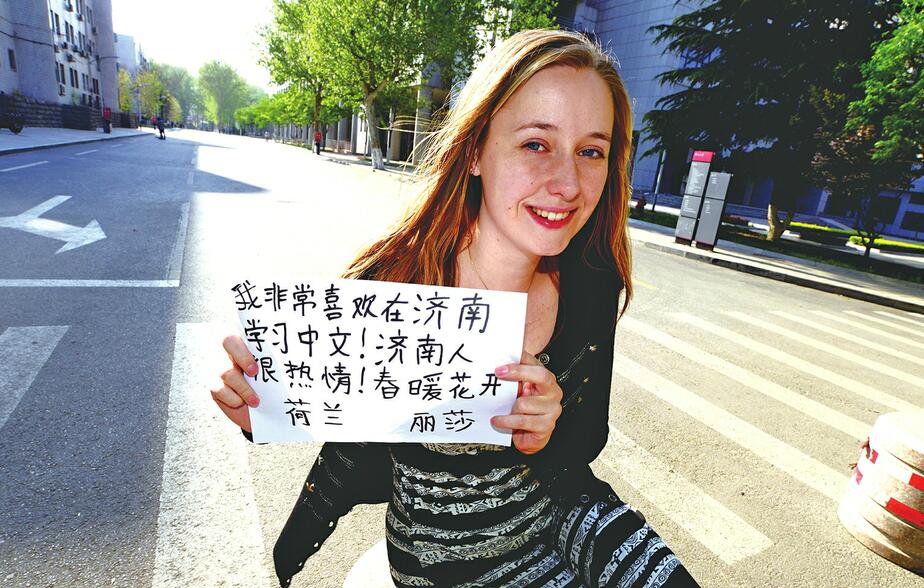 我非常喜欢在济南
学习中文！济南人
很热情！春暖花开
荷兰 丽莎